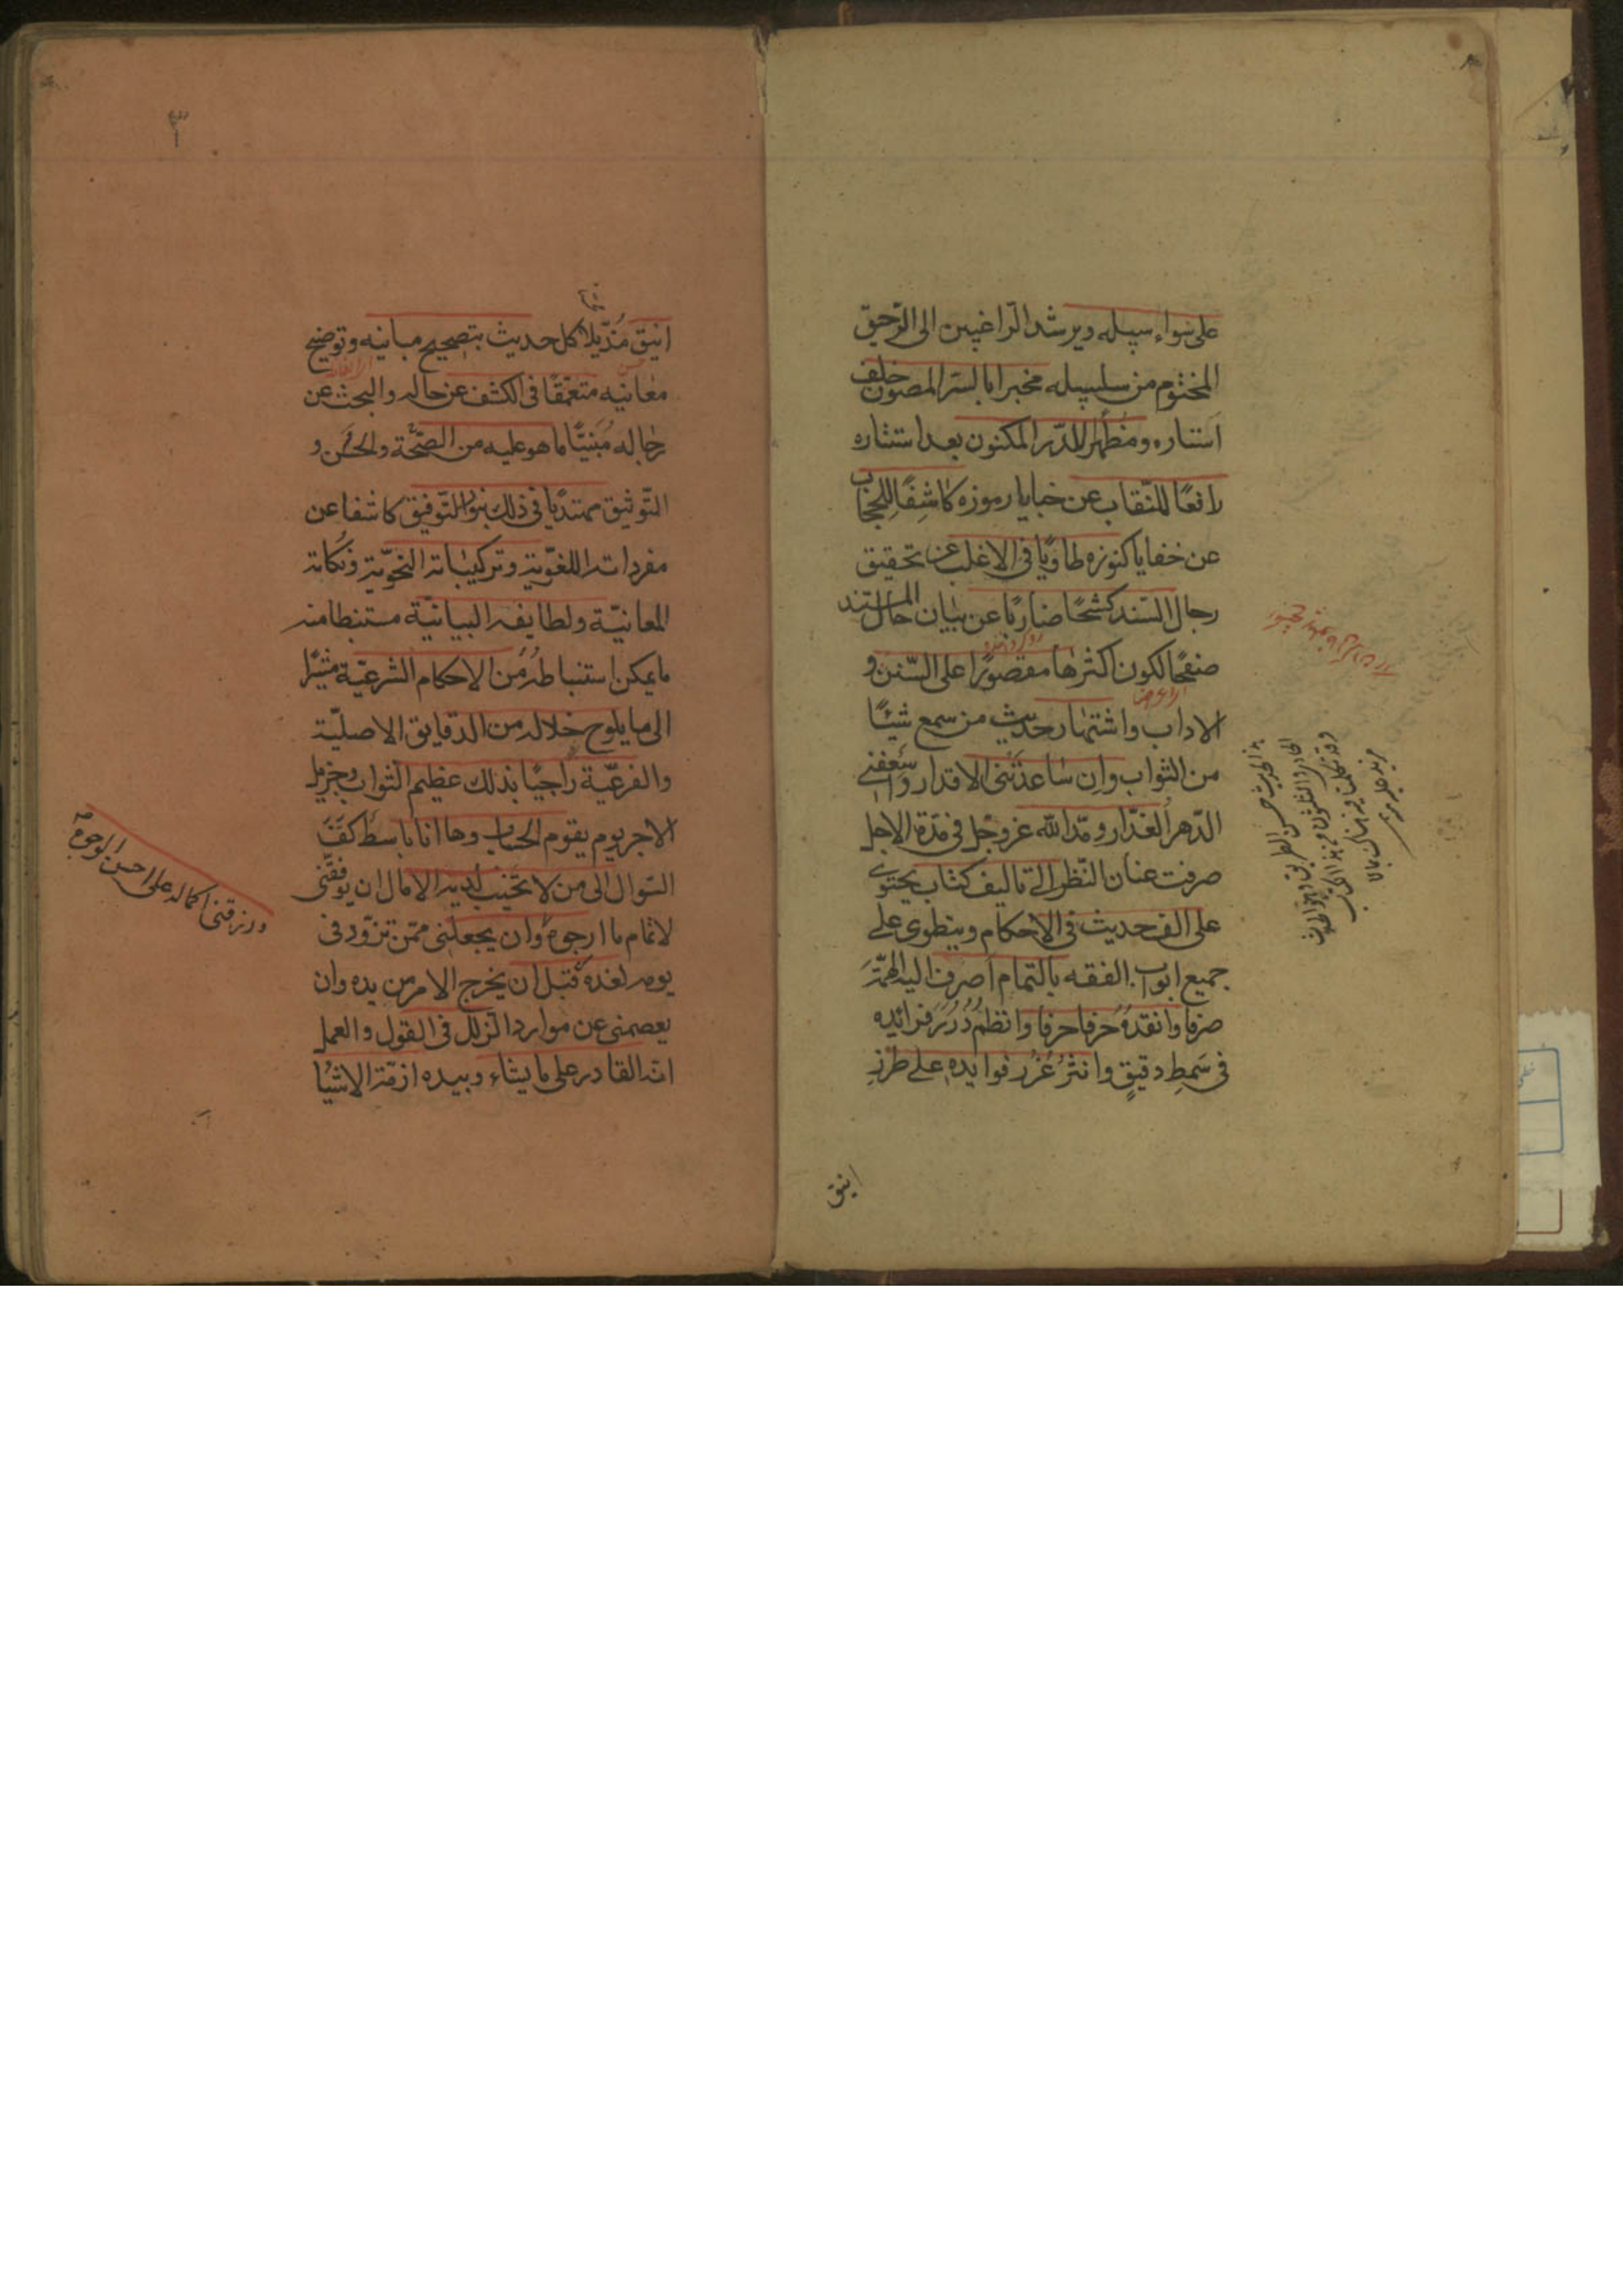 على سواء سبيله ويرشد الرّاغبين الى الرّحيق
المختوم من سلسبيله مخبرا بالسّر المصون خلف
استاره ومُظهِرا للدّر المكنون بعد استتاره
رافعًا للنّقاب عن خبايا رموزه كاشِفًا للحجاب
عن خفايا كنوزه طاويًا فى الاغلب عن تحقيق
رجال السّند كشحًا ضاربًا عن بيان حال المستند
صفحًا لكون اكثرها مقصورًا على السّنن و
الاداب واشتهار حديث من سمع شيئًا
من الثواب وان ساعدَتنى الاقدار واسعفنى
الدّهر الغدّار ومدّ الله عز وجل فى مدّة الاجل
صرفت عنان النّظر الى تاليف كتاب يحتوى
على الف حديث فى الاحكام وينطوى على
جميع ابواب الفقه بالتمام اصرف اليه الهمّة
صرفا وانقدهُ حرفا حرفا وانظمُ دُرَر فرائده
فى سَمطِ دقيقٍ وانثرُ غُرَر فوايده على طرزِ
انيق
هذا الحديث حسن الطريق وهو الحديث
الحادى والثلثون من هذا الكتاب
وقد تكلمنا فيه هناك بما لا
مزيد عليه
٣
انيق مُذَيّلا كل حديث بتصحيح مبانيه وتوضيح
معانيه متعمّقًا فى الكشف عن حاله والبحث عن
رجاله مُبَيّنًا ما هو عليه من الصّحّة والحُسن و
التّوثيق مهتديًا فى ذلك بنور التّوفيق كاشفا عن
مفرداته اللغويّة وتركيباته النحويّة ونكاته
المعانيّة ولطايفه البيانيّة مستنبطا منه
ما يمكن استنباطه من الاحكام الشرعيّة مشيرًا
الى ما يلوح خلاله من الدقايق الاصليّة
والفرعيّة راجيًا بذلك عظيم الثواب وجزيل
الاجر يوم يقوم الحساب وها انا باسط كفّ
السّوال الى من لا تخيب لديه الامال ان يوفقنى
لاتمام ما ارجوه وان يجعلنى ممّن تزوّد فى
يومه لغده قبل ان يخرج الامر من يده وان
يعصمنى عن موارد الزلل فى القول والعمل
انه القادر على ما يشاء وبيده ازمّة الاشيا
ورزقنى اكماله على احسن الوجوه